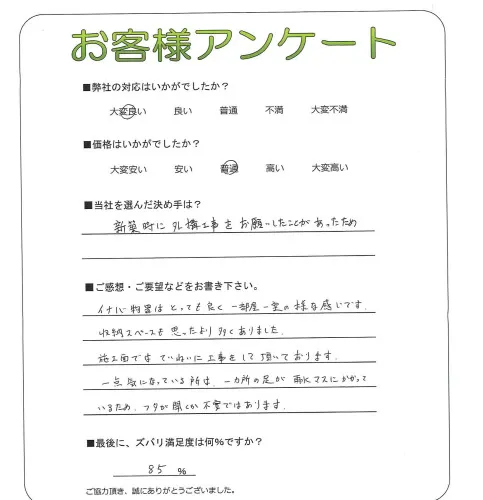 お客様アンケート
■弊社の対応はいかがでしたか?
大変良い 良い 普通 不満 大変不満
■価格はいかがでしたか?
大変安い 安い 普通 高い 大変高い
■当社を選んだ決め手は?
新築時に外構工事をお願いしたことがあったため
■ご感想・ご要望などをお書き下さい。
イナバ物置はとっても良く一部屋一室の様な感じです。
収納スペースも思ったより多くありました。
施工面ではていねいに工事をして頂いております。
一点気になっている所は、一カ所の足が雨水マスにかかって
いるため、フタが開くか不安ではあります。
■最後に、ズバリ満足度は何%ですか?
85 %
ご協力頂き、誠にありがとうございました。